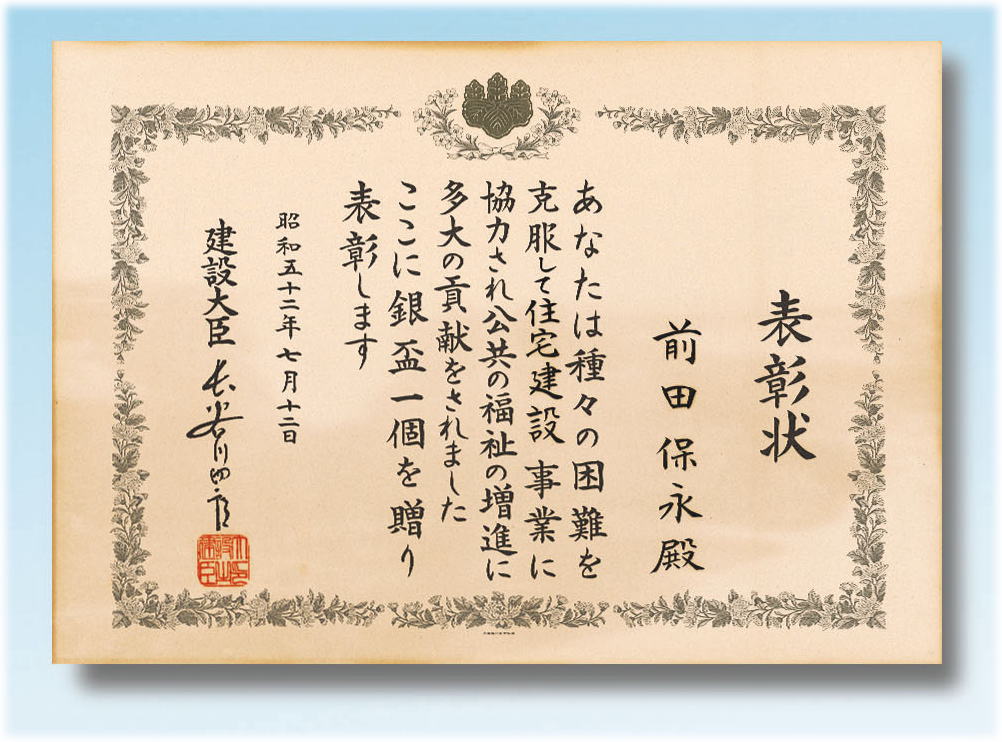 表彰状
前田保永殿
あなたは種々の困難を
克服して住宅建設事業に
協力され公共の福祉の増進に
多大の貢献をされました
ここに銀盃一個を贈り
表彰します
昭和五十二年七月十二日
建設大臣 長谷川四郎